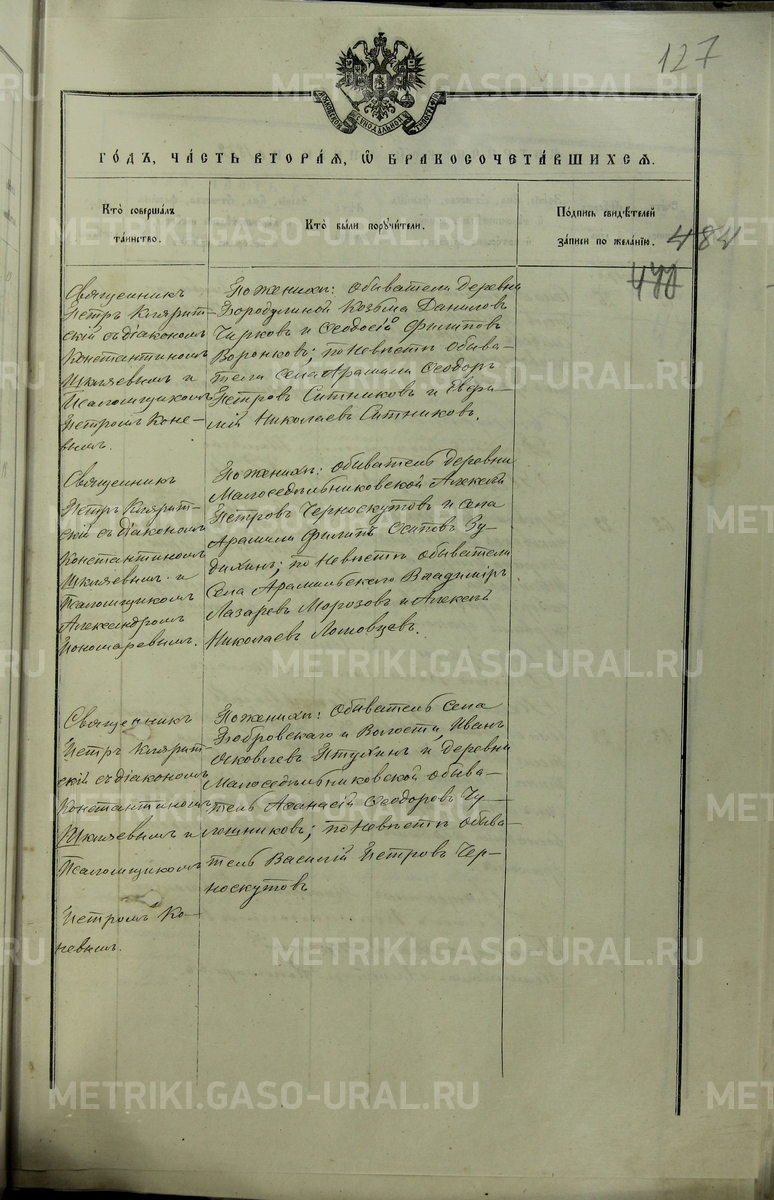 127
МОСКОВСКОЙ СѴНОДАЛЬНОЙ ТИПОГРАФІИ
ГО́ДЪ, ЧА́СТЬ ВТОРА́Я, Ѽ БРАКОСОЧЕТА́ВШИХСЯ.
Кто̀ соверша́лъ
та́инство.
Кто̀ бы́ли поручи́тели.
По́дпись свидѣ́телей
за́писи по жела́нію.
484
478
Священникъ
Петръ
скій съ діакономъ
Константиномъ
Шкляевымъ и
Псаломщикомъ
Петромъ Коне-
вымъ.
По женихѣ: обыватели деревни
Бородулиной Козьма Даниловъ
Чирковъ и Ѳеодосій Филиповъ
Воронковъ; по невѣстѣ обыва-
тели села Арамили Ѳеодоръ
Петровъ Ситниковъ и
Николаевъ Ситниковъ.
Священникъ
Петръ
скій съ діакономъ
Константиномъ
Шкляевымъ и
Псаломщикомъ
Александромъ
Пономаревымъ.
По женихѣ: обыватель деревни
Малоседельниковской Алексѣй
Петровъ Черноскутовъ и села
Арамили Филипъ Осиповъ Бу-
дихинъ; по невѣстѣ обыватели
села Арамильскаго Владиміръ
Лазаревъ Морозовъ и Алексѣй
Николаевъ Ломовцевъ.
Священникъ
Петръ
скій съ діакономъ
Константиномъ
Шкляевымъ и
Псаломщикомъ
Петромъ Ко-
невымъ.
По женихѣ: обыватель села
Бобровскаго и Волости, Иванъ
Яковлевъ Птухинъ и деревни
Малоседельниковской обыва-
тель Аѳанасій Ѳеодоровъ
по невѣстѣ обыва-
тель Василій Петровъ Чер-
носкутовъ
METRIKI.GASO-URAL.RU